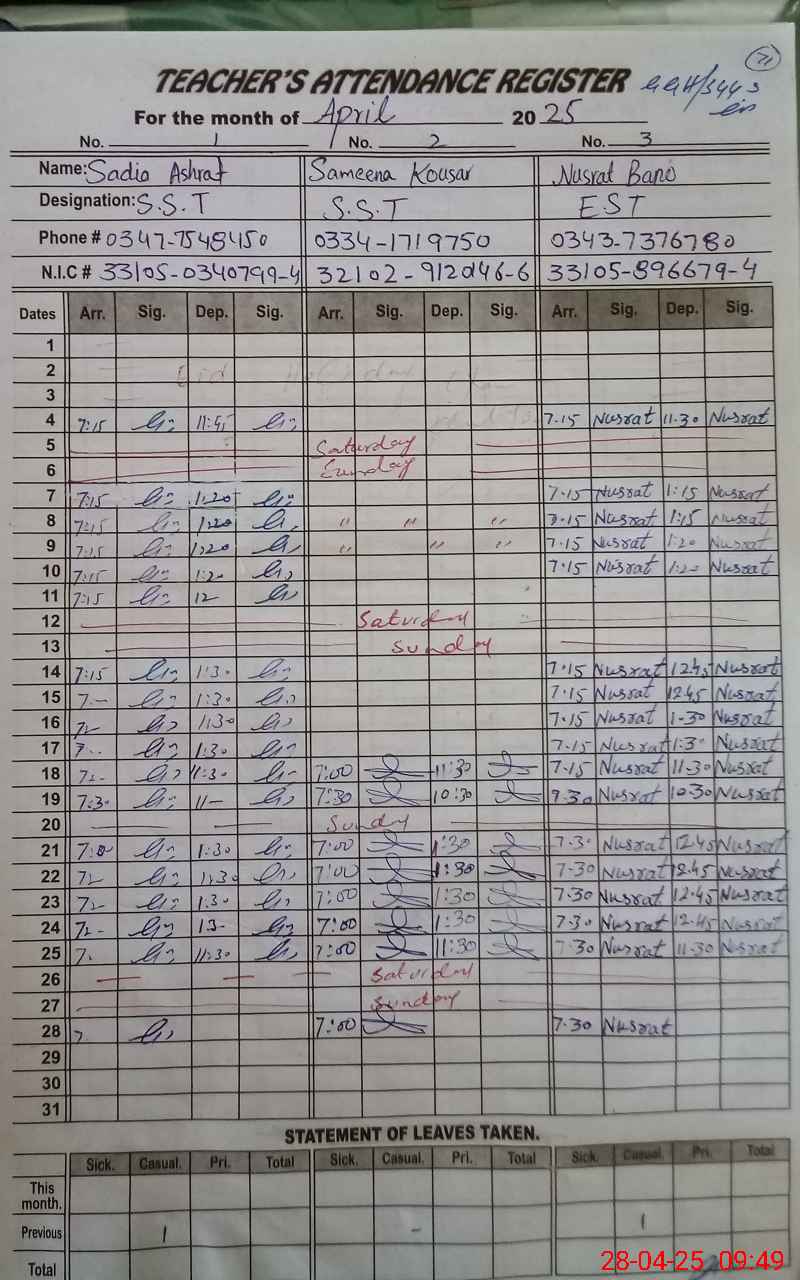 71
TEACHER'S ATTENDANCE REGISTER
For the month of April 2025
No. 1 No. 2 No. 3
Name: Sadia Ashraf Sameena Kousar Nusrat Bano
Designation: S.S.T S.S.T EST
Phone # 0347-7548450 0334-1719750 0343-7376780
N.I.C # 33105-0340799-4 32102-912046-6 33105-896679-4
Dates Arr. Sig. Dep. Sig. Arr. Sig. Dep. Sig. Arr. Sig. Dep. Sig.
1
2 Eid
3
4 7:15 11:45 7.15 Nusrat 11.30 Nusrat
5 Saturday
6 Sunday
7 7:15 1:20 7.15 Nusrat 1:15 Nusrat
8 7:15 1:20 " " " 7.15 Nusrat 1:15 Nusrat
9 7:15 1:20 " " " 7.15 Nusrat 1:20 Nusrat
10 7:15 1:20 7.15 Nusrat 1:20 Nusrat
11 7:15 12
12 Saturday
13 Sunday
14 7:15 1:30 7.15 Nusrat 12.45 Nusrat
15 7- 1:30 7.15 Nusrat 12.45 Nusrat
16 1:30 7.15 Nusrat 1-30 Nusrat
17 7.. 1:30 7.15 Nusrat 1:30 Nusrat
18 11:30 7:00 11:30 7.15 Nusrat 11.30 Nusrat
19 7:30 11- 7:30 10:30 7.30 Nusrat 10.30 Nusrat
20 Sunday
21 7:00 1:30 7:00 1:30 7.30 Nusrat 12.45 Nusrat
22 1:30 7:00 1:30 7.30 Nusrat 12.45 Nusrat
23 1:30 7:00 1:30 7.30 Nusrat 12.45 Nusrat
24 7:00 1:30 7.30 Nusrat 12.45 Nusrat
25 7. 11:30 7:00 11:30 7.30 Nusrat 11.30 Nusrat
26 Saturday
27 Sunday
28 7. 7:00 7.30 Nusrat
29
30
31
STATEMENT OF LEAVES TAKEN.
Sick. Casual. Pri. Total Sick. Casual. Pri. Total Sick. Casual. Pri. Total
This month.
Previous 1 - 1
Total
28-04-25 09:49